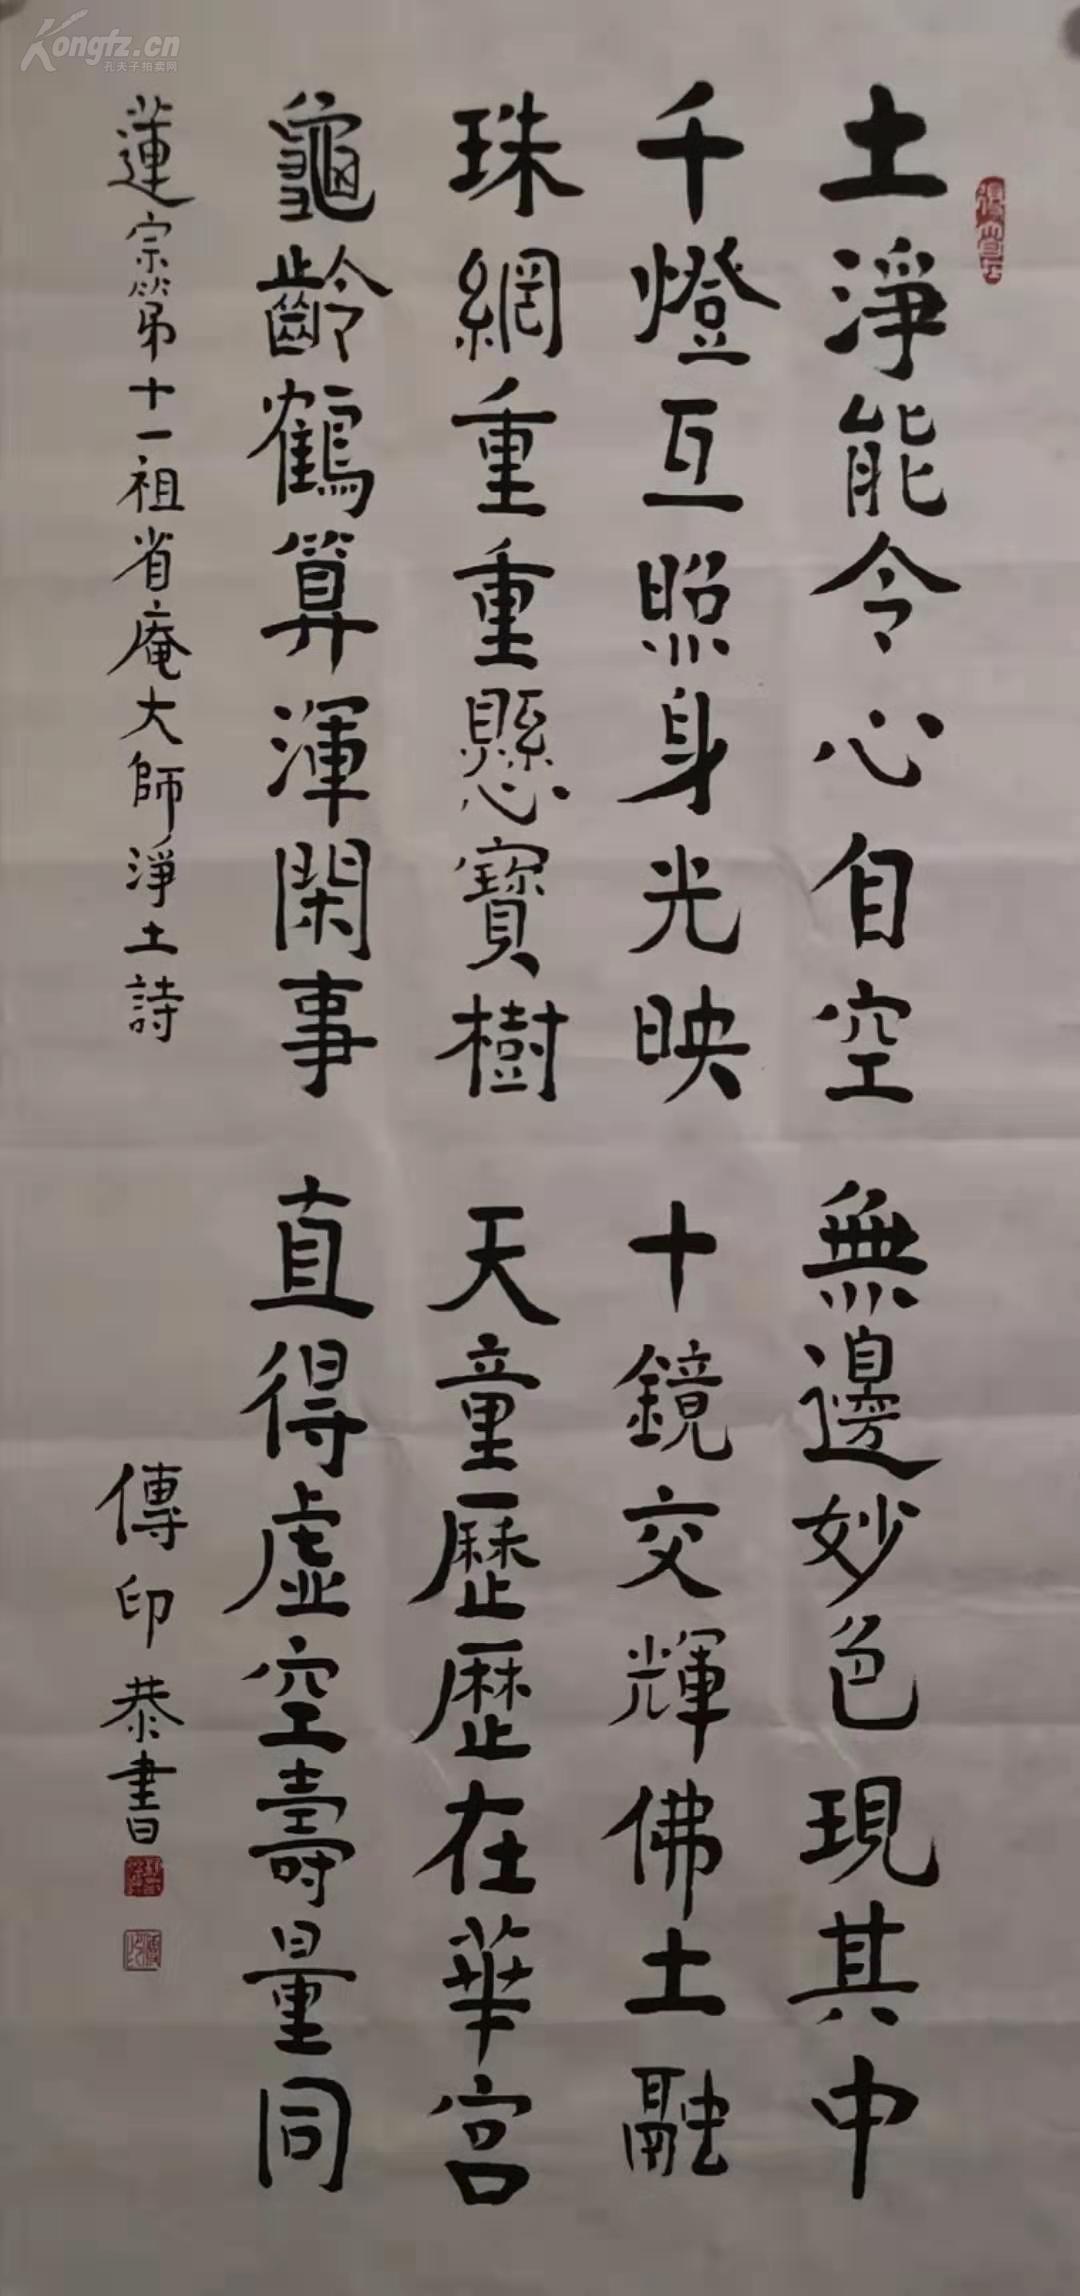 土淨能令心自空 無邊妙色現其中
千燈互照身光映 十鏡交輝佛土融
珠網重重懸寶樹 天童歷歷在華宮
龜齡鶴算渾閑事 直得虛空壽量同
蓮宗第十一祖省庵大師淨土詩 傳印恭書
Kongfz.cn
孔夫子拍卖网